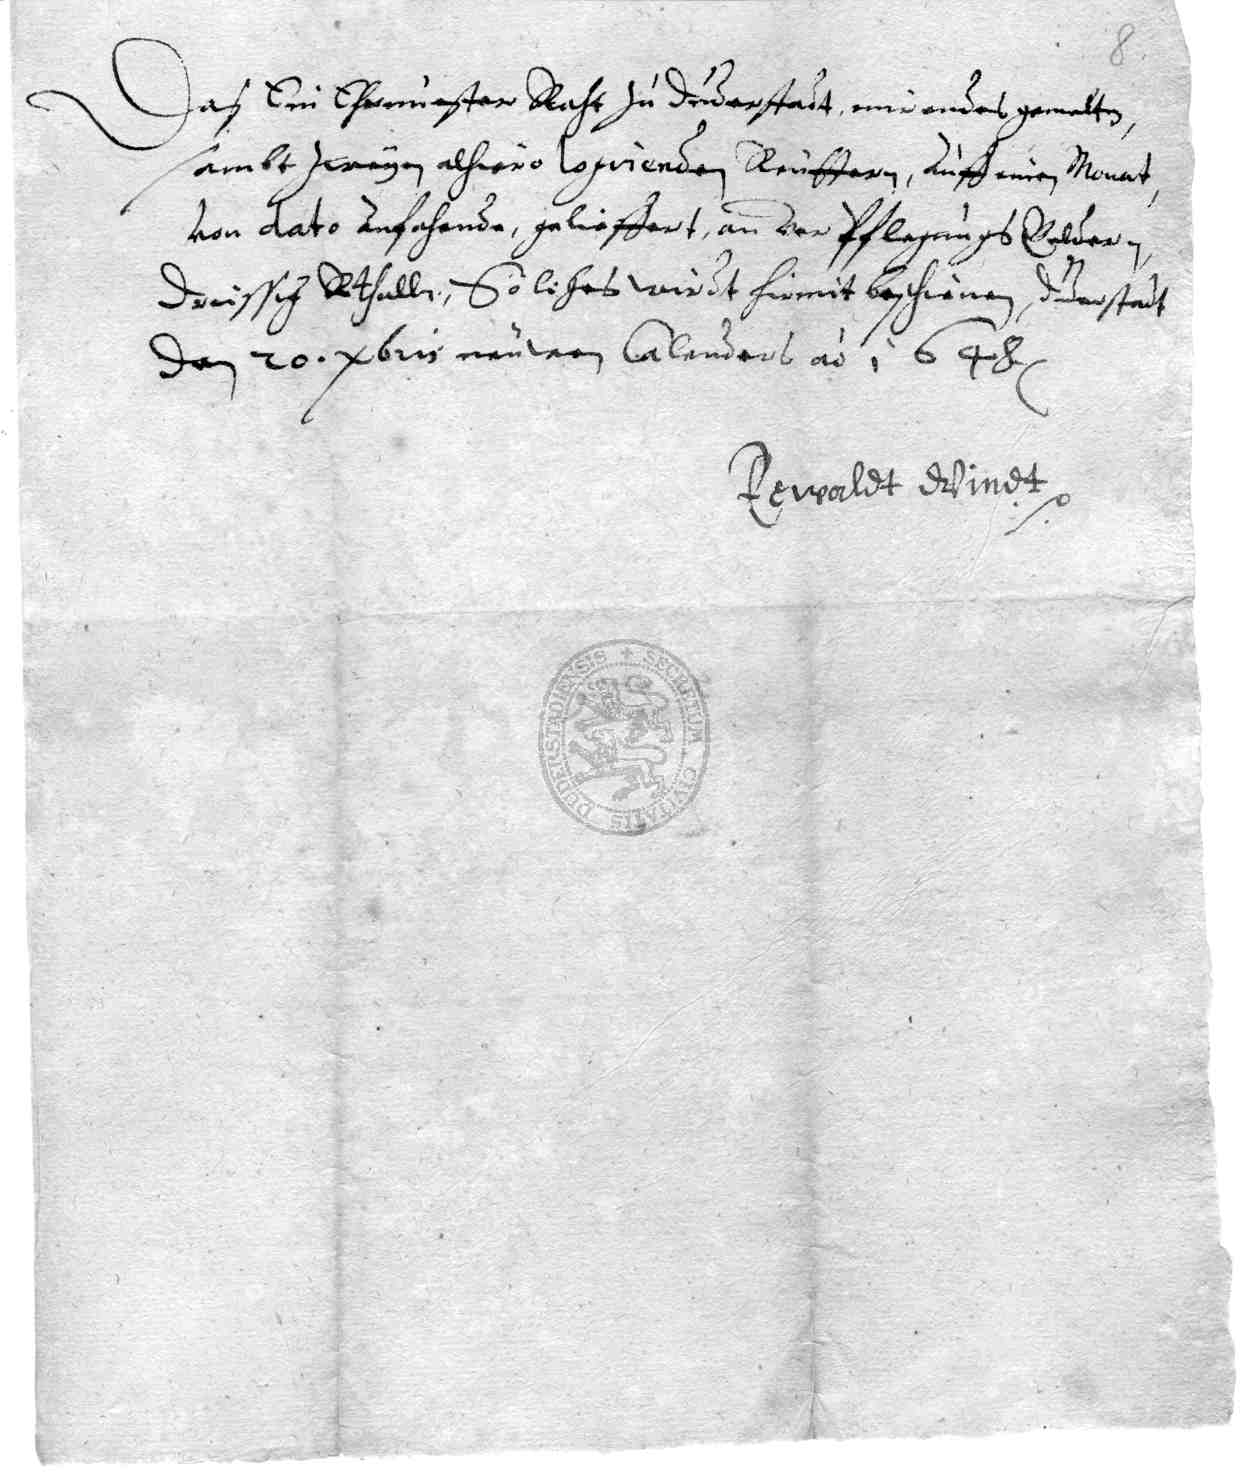 8.
Daß Ein Ehrnuester Raht zu Duderstadt, mir endes gemelten,
sambt zweÿen alhiero logirenden Reüttern, auff einen Monat,
von dato anfahende, gelieffert, an Verpflegungs Geldern,
dreissig Rthalr., Soliches wirdt hirmit beschienen, Duderstadt
den 20. xbris neüwen Calenders ao 1648
Rewaldt Windt
SECRETUM CIVITATIS DUDERSTADIENSIS